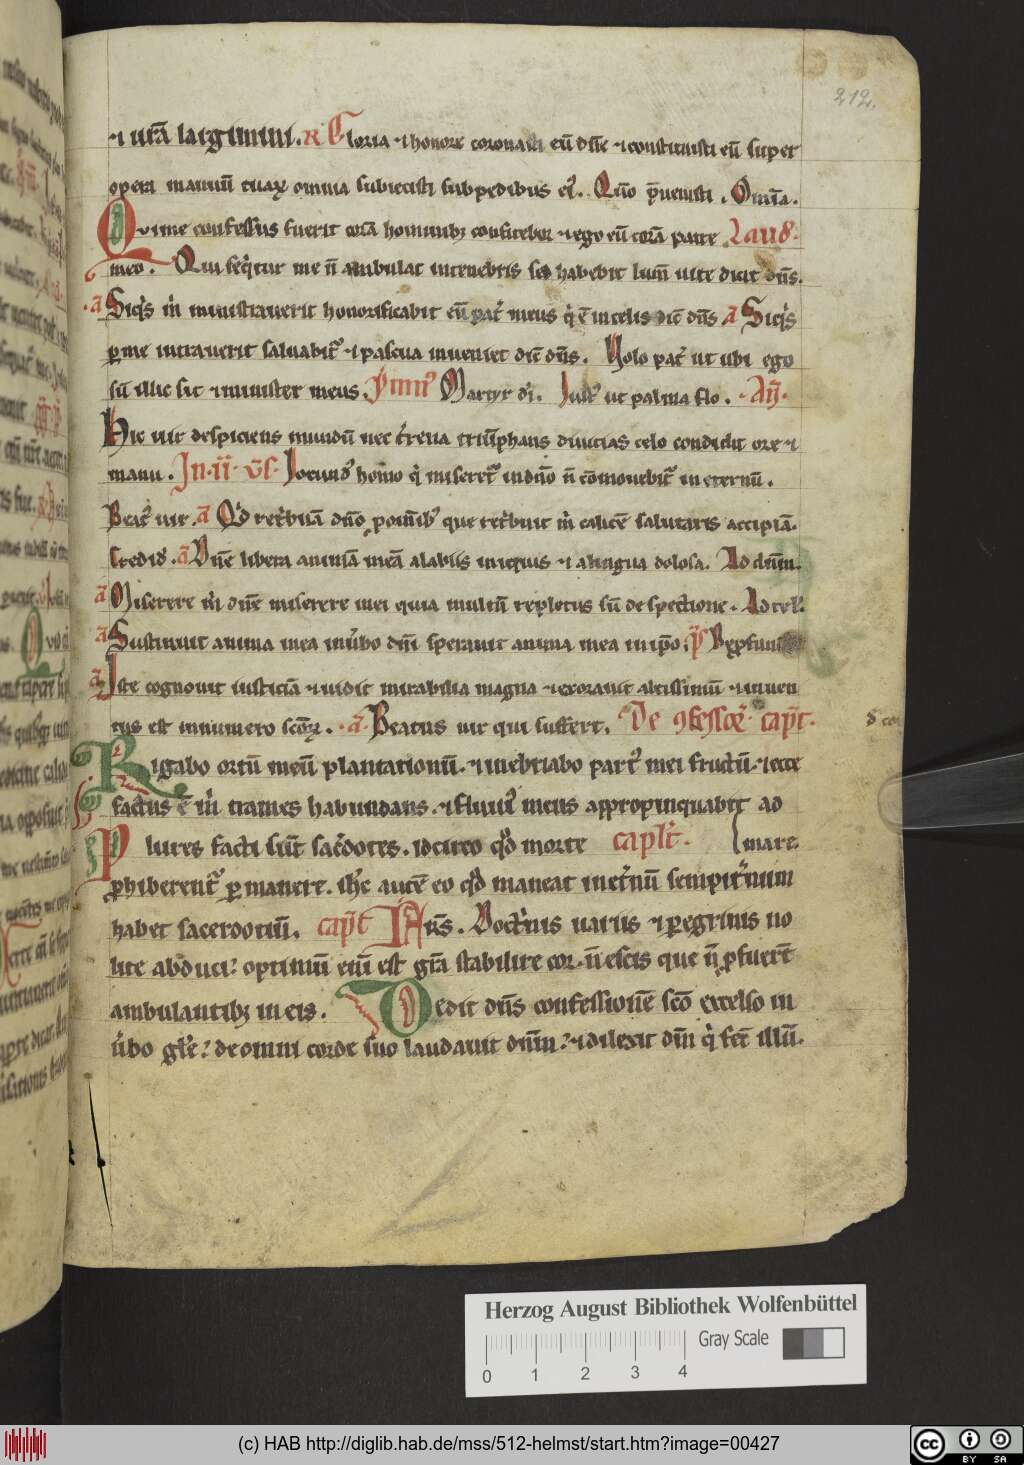 212.
⁊ urã largimini. R Gloria ⁊ honore coronasti eũ dñe ⁊ constituisti eũ super
opera manuũ tuaꝝ omnia subiecisti sub pedibus eiꝰ. Qño p̃uenisti. Omĩa.
Qui me confessus fuerit corã hominibꝫ confitebor ⁊ ego eũ corã patre Laud᷒.
meo. Qui seq̇tur me nñ ambulat in tenebris sed habebit lum̃ uite dicit dñs.
.ã Siqͥs m̃ ministrauerit honorificabit eũ pat̃ meus qͥ ẽ in celis dic̃ dñs ã Siqͥs
ꝑ me introierit saluabit᷑ ⁊ pascua inueniet dic̃ dñs. Uolo pat̃ ut ubi ego
sũ illic sit ⁊ minister meus. Martyr dĩ. Iustꝰ ut palma flo. Añ.
Hic uir despiciens mundũ ⁊ t̃rena triũphans diuicias celo condidit ore ⁊
manu. In .ii. us̃. Iocundꝰ homo qͥ miseret᷑ in dño ñ cõmouebit᷑ in eternũ.
Beatꝰ uir. ã Qͥd ret̃buã dño ꝓ om̃ibꝰ que ret̃buit m̃ calicẽ salutaris accipiã.
Credidi. ã Dñe libera animã meã a labiis iniquis ⁊ a lingua dolosa. Ad dñm.
ã Miserere m̃ dñe miserere mei quia multũ repletus sũ despectione. Ad te l.
ã Sustinuit anima mea in ũbo dñi sperauit anima mea in ip̃o. p̃s
ã Iste cognouit iusticiã ⁊ uidit mirabilia magna ⁊ exorauit altissimũ ⁊ inuen
tus est in numero scõꝝ. ã Beatus uir qui suffert. De ꝯfessoꝝ capit̃.
Rigabo ortũ meũ plantationũ. ⁊ inebriabo partꝰ mei fructũ. ⁊ ecce
factus ẽ m̃ trames habundans. ⁊ fluuiꝰ meus appropinquabit ad
Plures facti sũt sac̃dotes. idcirco qͥd morte capit̃. mare.
ꝓhiberent᷑ ꝑmanere. ihc autẽ eo qͥd maneat in et̃nũ sempit̃num
habet sacerdotiũ. capit̃ Frs̃. Doct̃nis uariis ⁊ ꝑegrinis no
lite abduci. optimũ enĩ est gr̃a stabilire cor. ñ escis que ñ ꝓfuerũt
ambulantibꝫ in eis. Dedit dñs confessionẽ sc̃o excelso in
ũbo gl̃e. de omni corde suo laudauit dñm. ⁊ dilexit dm̃ qͥ fec̃ illũ.
Herzog August Bibliothek Wolfenbüttel
Gray Scale
0 1 2 3 4
(c) HAB http://diglib.hab.de/mss/512-helmst/start.htm?image=00427
cc BY SA